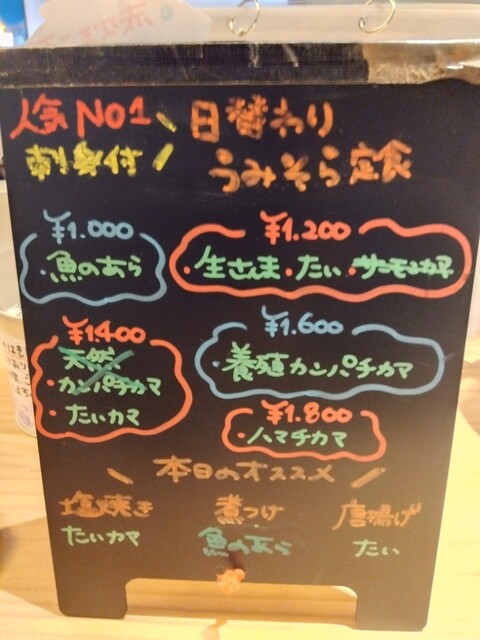 人気 NO1 日替わり
刺身付 うみそら定食
¥1.000
・魚のあら
¥1.200
・生さんま・たい・サーモンカマ
¥1.400
天然
・カンパチカマ
・たいカマ
¥1.600
・養殖カンパチカマ
¥1.800
・ハマチカマ
本日のオススメ
塩焼き 煮つけ 唐揚げ
たいカマ 魚のあら たい